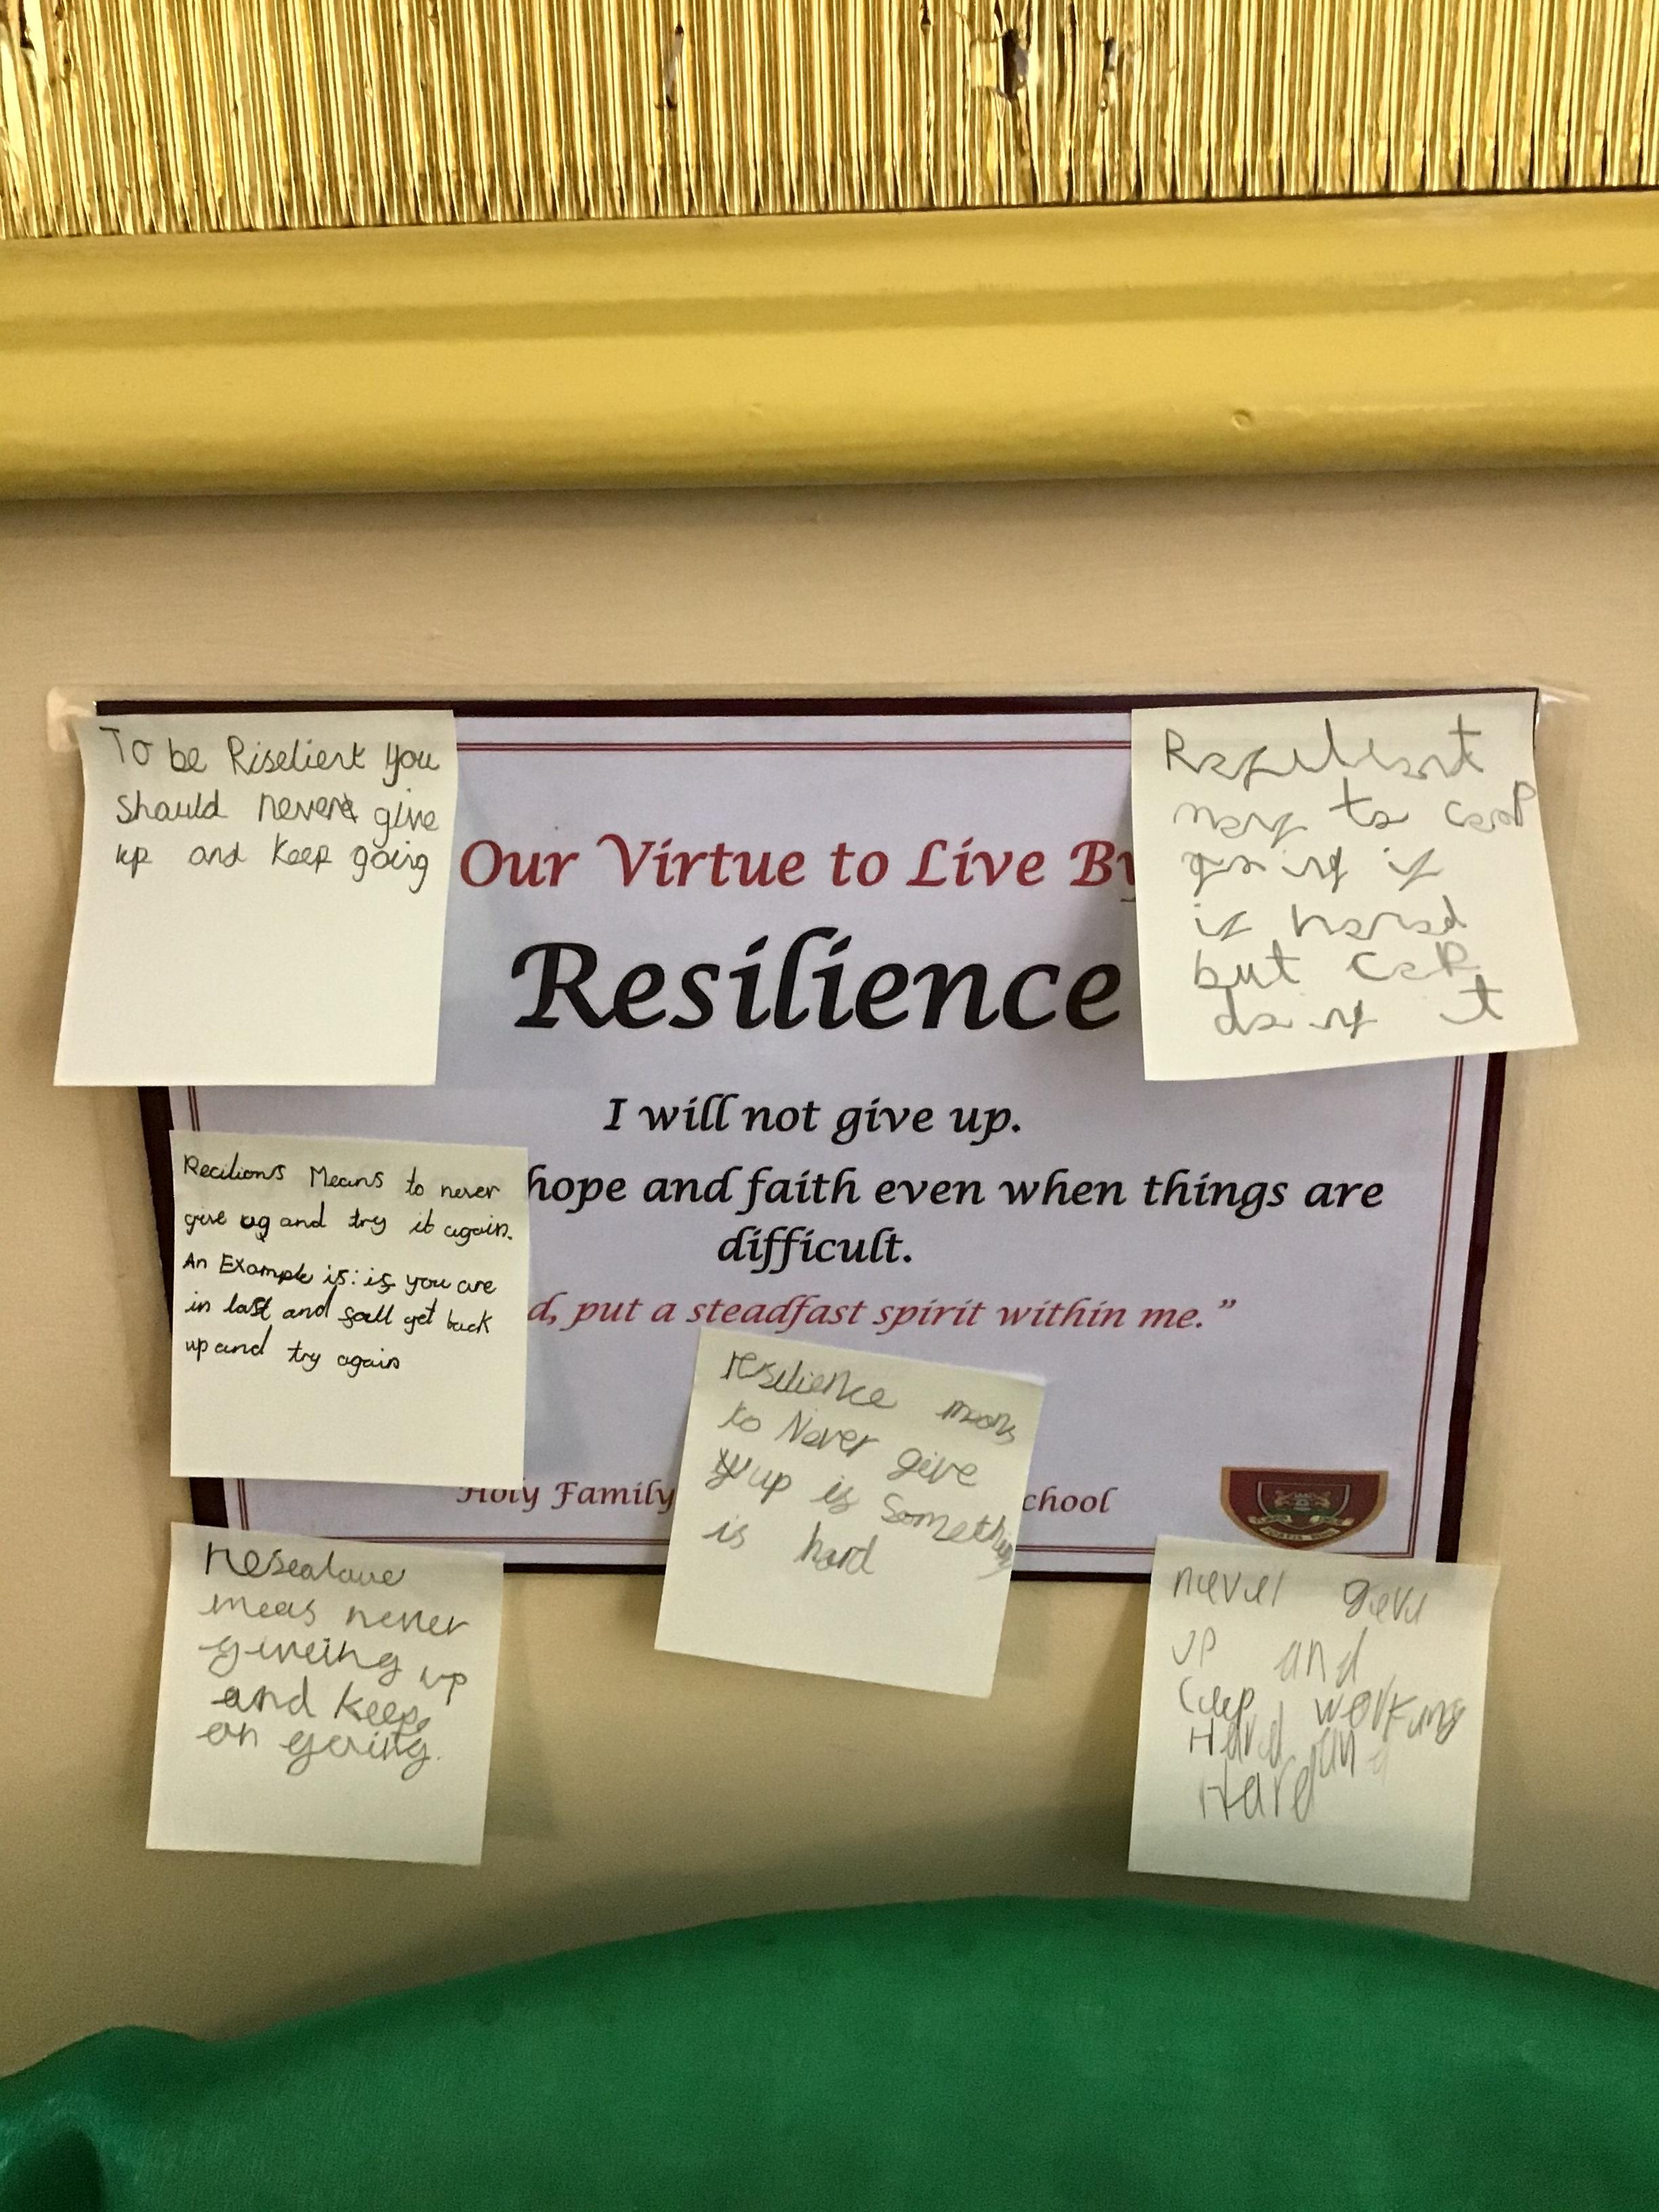 To be Riselient you
should never give
up and keep going
Our Virtue to Live By
Resilience
I will not give up.
hope and faith even when things are
difficult.
d, put a steadfast spirit within me.”
Holy Family
chool
to ceep
is
but ceep
it
Recilions Means to never
give up and try it again.
An Example is: if you are
in last and fall get back
up and try again
resilience means
to Never give
up is Something
is hard
meas never
giveing up
and keep
on going.
never geve
up and
ceep working
Hard and
Hard